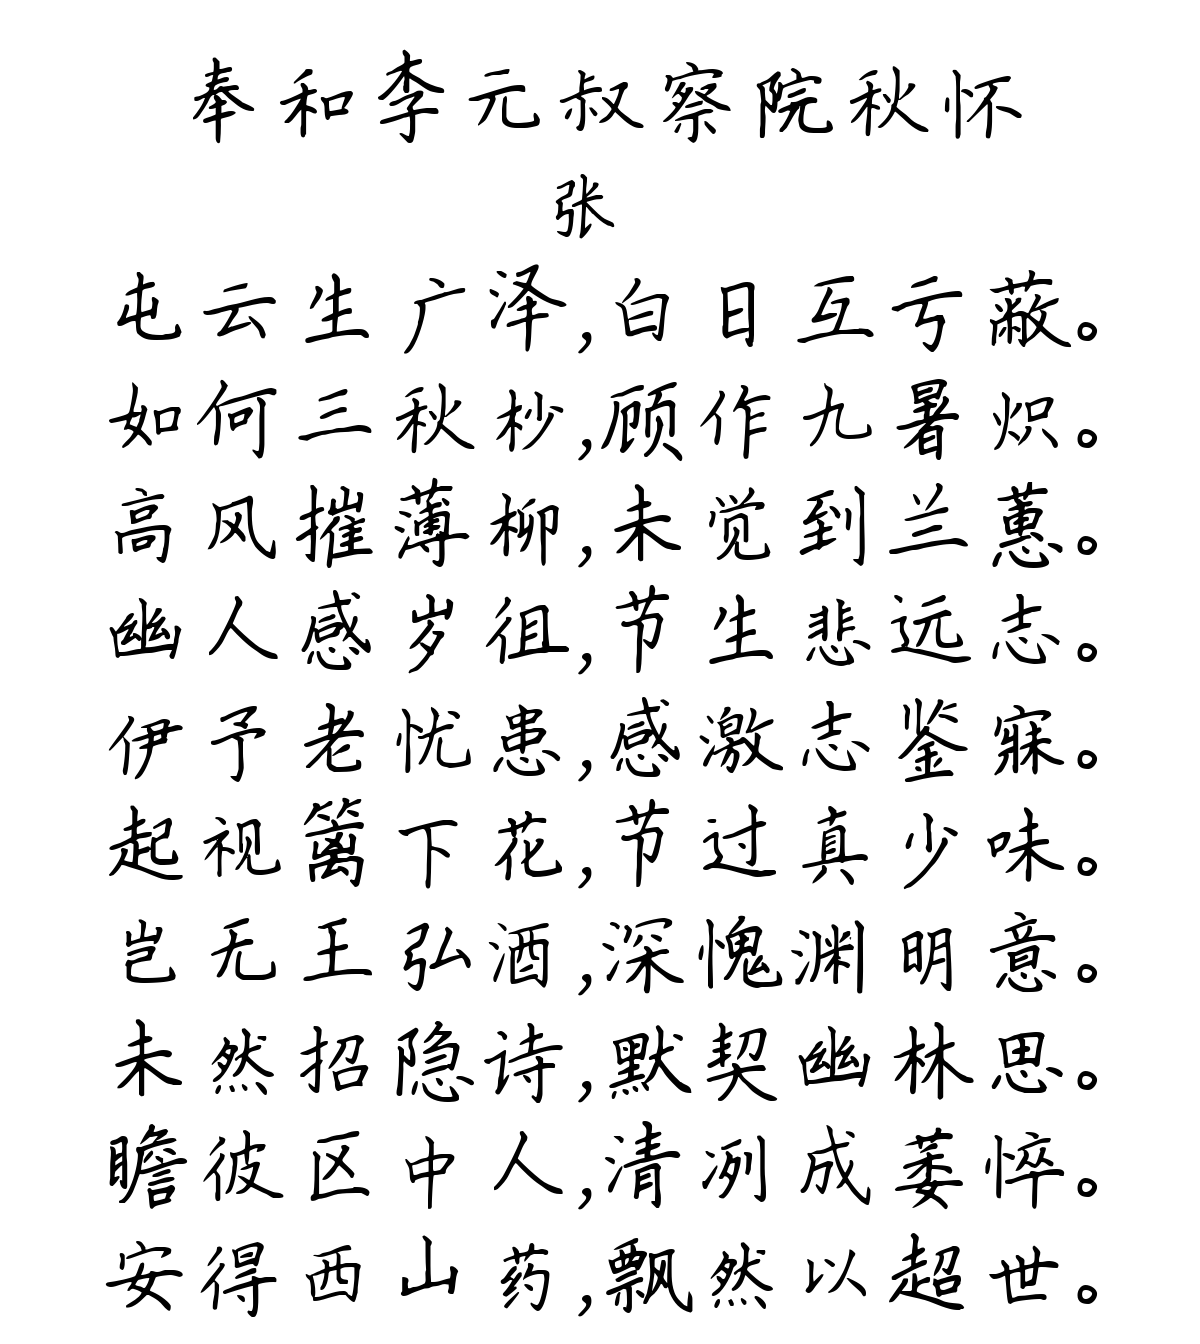 奉和李元叔察院秋怀
张
屯云生广泽,白日互亏蔽。
如何三秋杪,顾作九暑炽。
高风摧薄柳,未觉到兰蕙。
幽人感岁徂,节生悲远志。
伊予老忧患,感激志鉴寐。
起视篱下花,节过真少味。
岂无王弘酒,深愧渊明意。
未然招隐诗,默契幽林思。
瞻彼区中人,清冽成萎悴。
安得西山药,飘然以超世。